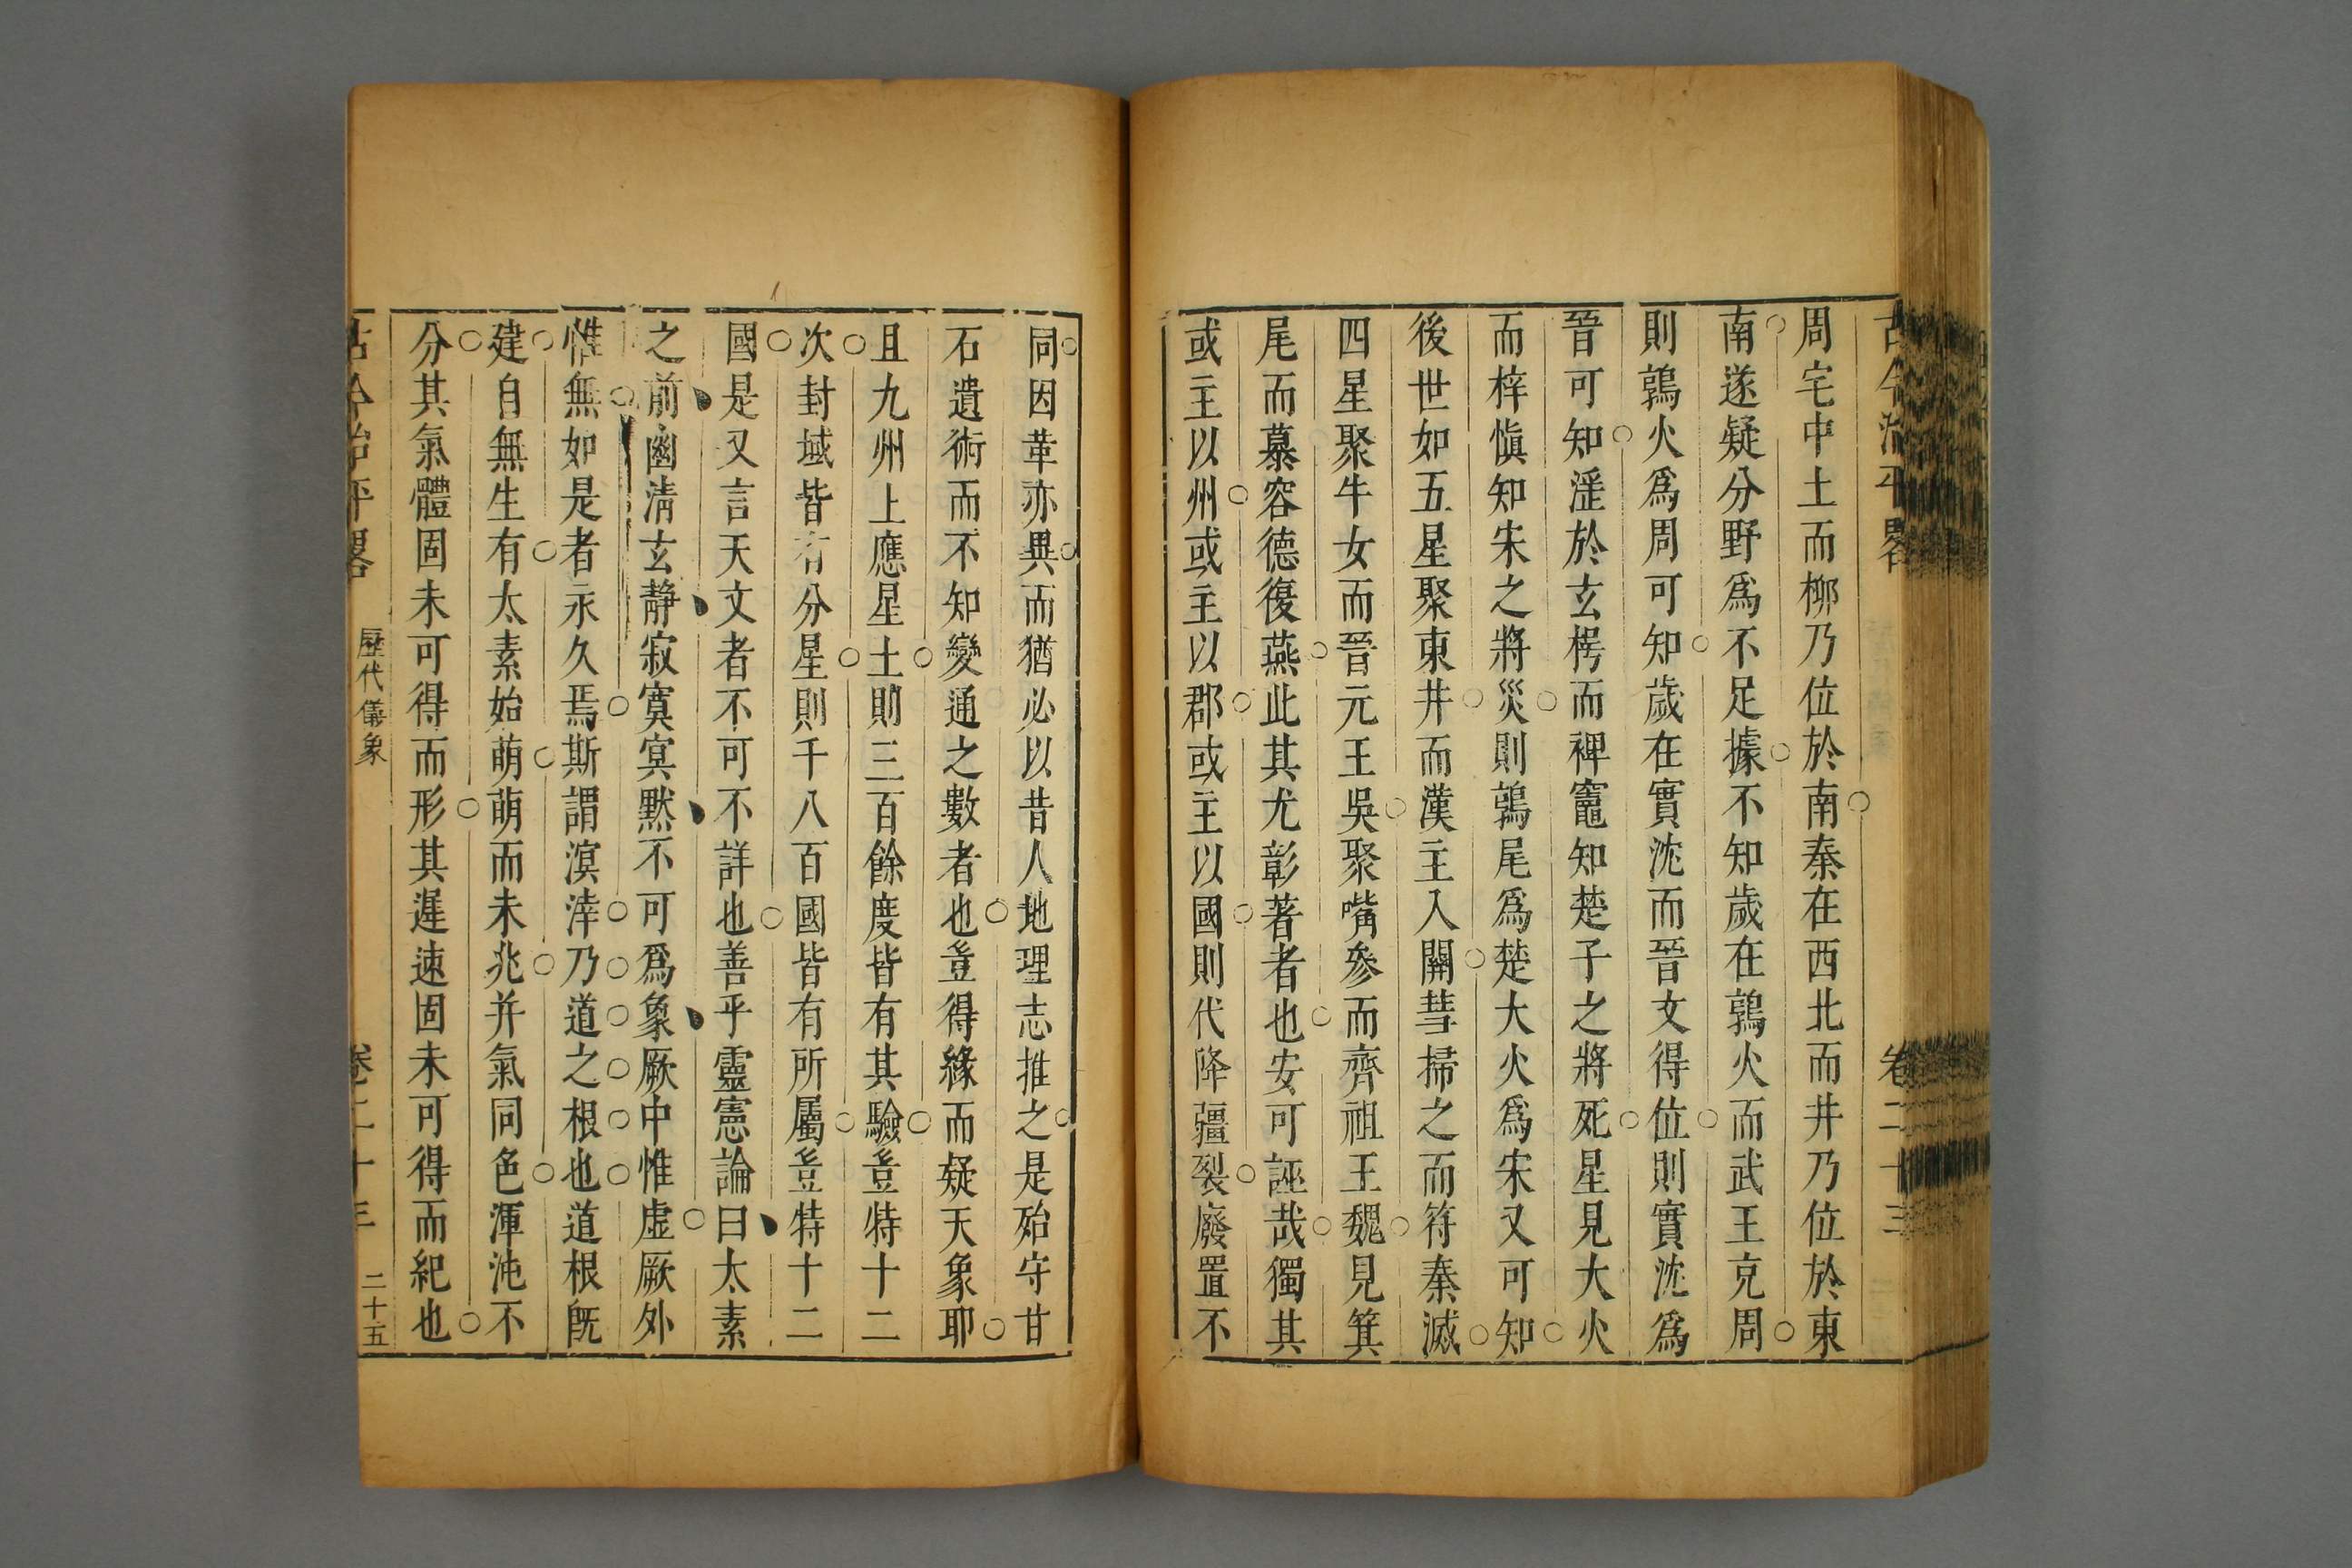 古今治平畧 卷二十三
周宅中土而柳乃位於南秦在西北而井乃位於東
南遂疑分野爲不足據不知歲在鶉火而武王克周
則鶉火爲周可知歲在實沈而晉文得位則實沈爲
晉可知淫於玄枵而裨竈知楚子之將死星見大火
而梓愼知宋之將災則鶉尾爲楚大火爲宋又可知
後世如五星聚東井而漢主入關彗掃之而符秦滅
四星聚牛女而晉元王吳聚嘴參而齊祖王魏見箕
尾而慕容德復燕此其尤彰著者也安可誣哉獨其
或主以州或主以郡或主以國則代降疆裂廢置不
同因革亦異而猶必以昔人地理志推之是殆守甘
石遺術而不知變通之數者也豈得緣而疑天象耶
且九州上應星土則三百餘度皆有其驗豈特十二
次封域皆有分星則千八百國皆有所屬豈特十二
國是又言天文者不可不詳也善乎靈憲論曰太素
之前幽清玄靜寂寞冥默不可爲象厥中惟虛厥外
惟無如是者永久焉斯謂溟涬乃道之根也道根既
建自無生有太素始萌萌而未兆并氣同色渾沌不
分其氣體固未可得而形其遲速固未可得而紀也
古今治平畧 歷代儀象 卷二十三 二十五